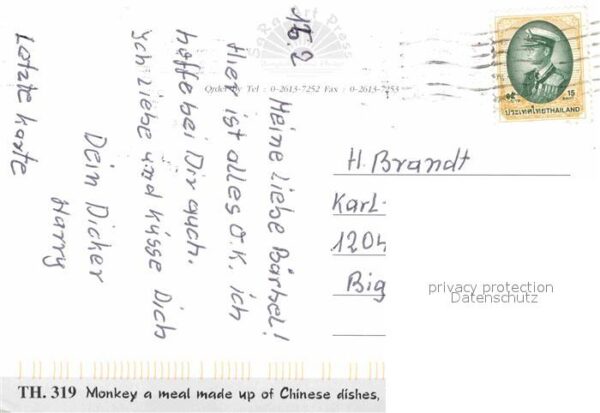 15.2
Meine liebe Bärbel!
Hier ist alles O.K. ich
hoffe bei Dir auch.
Ich liebe und küsse Dich
Dein Dicker
Harry
Letzte Karte
SaRa Art Press
Order by Tel : 0-2613-7252 Fax : 0-2613-7253
15
ประเทศไทย THAILAND
H. Brandt
Karl-
1204
Big
privacy protection
Datenschutz
TH. 319 Monkey a meal made up of Chinese dishes,